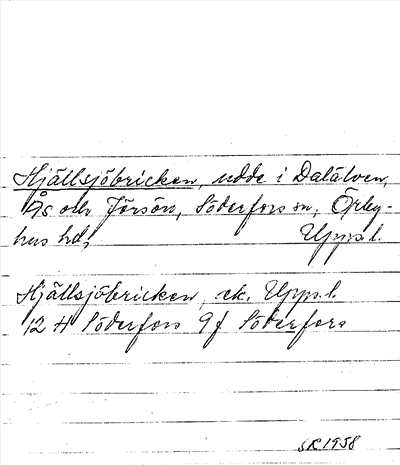 Hjällsjöbricken, udde i Dalälven,
Ås och Jörsön, Söderfors sn, Örby-
hus hd, Uppl.
Hjällsjöbricken, ek. Uppl.
12 H Söderfors 9f Söderfors
SR 1958